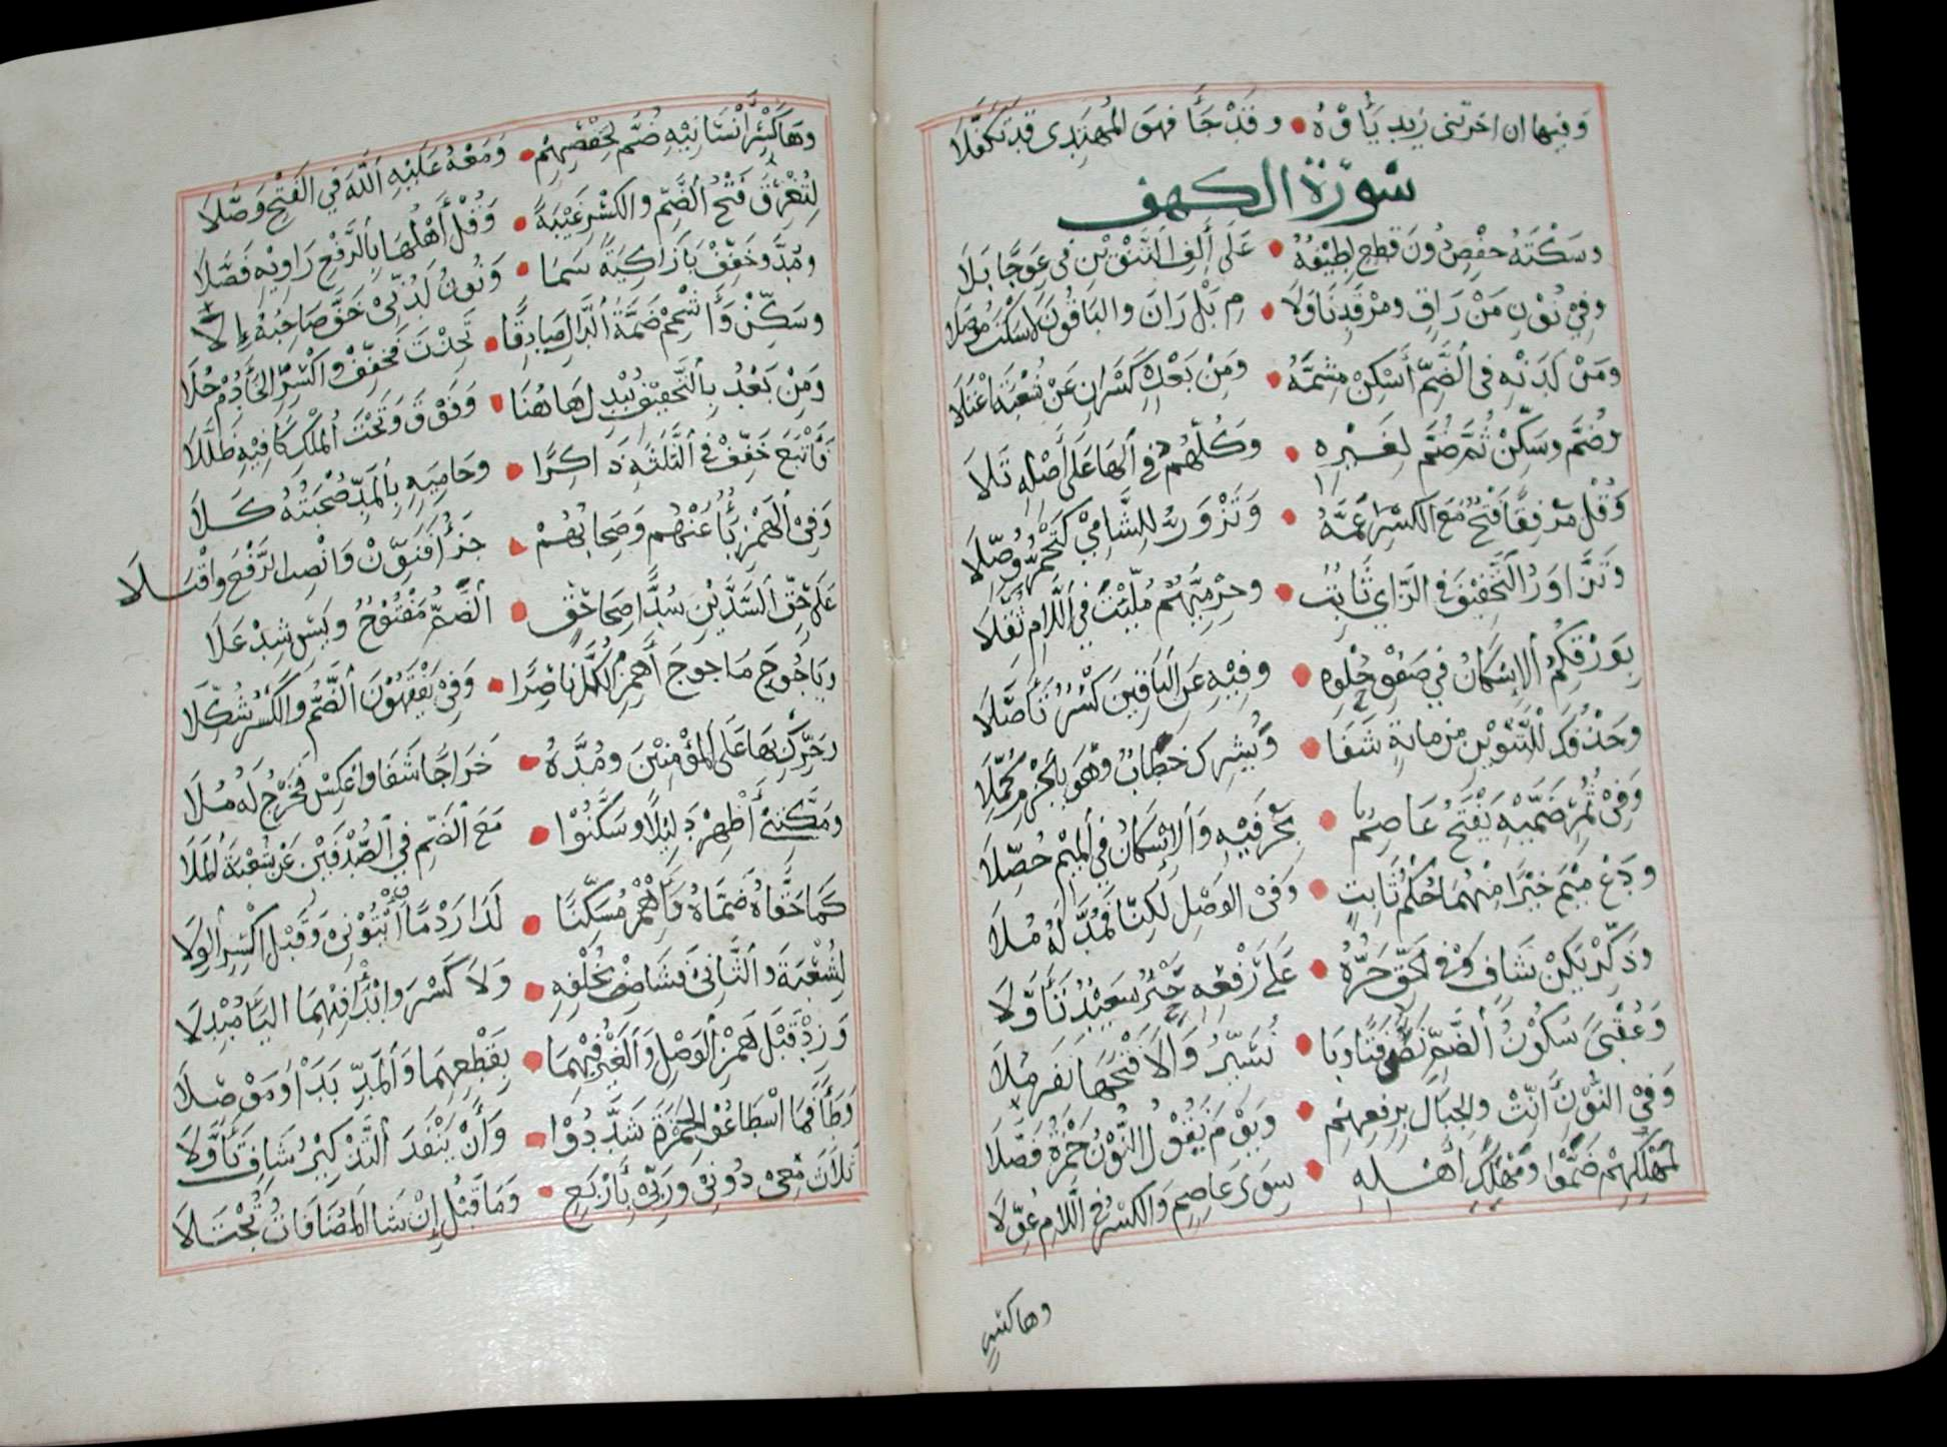 وفيها ان اخرتني زيد ياؤه • وقد جا فهو المهتدى قد تكفلا
سورة الكهف
وسَكْتَهُ حفْصٍ دُونَ قطعٍ لطِيْفَةٌ • عَلَى أَلِفِ التَّنْوِيْنِ في عِوَجًا بَلَا
وفِيْ نُوْنِ مَنْ رَاقٍ ومَرْقَدِنَا وَلَا • مِ بَلْ رَانَ والبَاقُونَ لَا سَكْتَ مُوصَلَا
ومَنْ لَدْنِهِ في ٱلضَّمِّ أَسْكِنْ مُشِمَّهُ • ومِنْ بَعْدِهِ كَسْرَانِ عَنْ شُعْبَةَ اعْتَلَا
وضُمَّ وسَكِّنْ ثُمَّ ضُمَّ لِغَيْرِهِ • وَكُلُّهُمُ في ٱلْهَا عَلَى أَصْلِهِ تَلَا
وَقُلْ مَرْفِقًا فَتْحٌ مَعَ الكَسْرِ عَمَّهُ • وَتَزْوَرُّ لِلشَّامِيْ كَتَحْمَرُّ وُصِّلَا
وَتَزَّاوَرُ ٱلتَّخْفِيْفَ في ٱلزَّاي ثَابِتٌ • وحِرْمِيُّهُمْ مُلِّئْتَ في ٱللَّامِ ثُقِّلَا
بِوَرْقِكُمُ ٱلإِسْكَانُ فِي صَفْوِ حُلْوِهِ • وفِيْهِ عَنِ ٱلْبَاقِيْنَ كَسْرٌ تَأَصَّلَا
وَحَذْفُكَ لِلتَّنْوِيْنِ مِنْ مائةٍ شَفَا • وَيُشْرِكْ خِطَابٌ وَهْوَ بِالجَزْمِ كُمِّلَا
وَفِيْ ثُمُرٍ ضَمَّيْهِ يَفْتَحُ عَاصِمٌ • بِحَرْفَيْهِ وَٱلإِسْكَانُ فِي ٱلْمِيْمِ حُصِّلَا
ودَعْ مِيْمَ خَيْرًا مِنْهُمَا حُكْمُ ثَابِتٍ • وَفي الوَصْلِ لَكِنَّا فَمُدَّ لَهُ مُلَا
وذَكِّرْ يَكُنْ شَافٍ وَفي ٱلْحَقِّ جَرُّهُ • عَلَى رَفْعِهِ حَبْرٌ سَعِيْدٌ تَأَوَّلَا
وَعُقْبًى سُكُوْنُ ٱلضَّمِّ نَصُّ فَتًا ويَا • نُسَيِّرُ وَالَا فَتْحَهَا نَفَر مُلَا
وَفي النُّوْنِ أَنِّثْ والجِبَالَ بِرَفْعِهِمْ • وَيَوْمَ يَقُوْلُ النُّوْنُ حَمْزَةُ فَصَّلَا
لِمَهْلِكِهِمْ ضَمُّوْا ومَهْلِكَ أَهْلِهِ • سِوَى عَاصِمٍ وَالكَسْرُ في ٱللَّامِ عُوِّلَا
وها كسر
وهَا كَسْرِ أَنْسَانِيْهِ ضُمَّ لِحَفْصِهِمْ • وَمَعْهُ عَلَيْهِ ٱللَّهَ فِي الفَتْحِ وَصَّلَا
لِتُغْرِقَ فَتْحُ ٱلضَّمِّ والكَسْرِ غَيْبَةً • وَقُلْ أَهْلُهَا بِالرَّفْعِ رَاوِيْهِ فَصَّلَا
ومُدَّ وخَفِّفْ يَا زَاكِيَةً سَمَا • وَنُونُ لَدُنِّيْ خَفَّ صَاحِبُهُ إِلَا
وسَكِّنْ وَأَشْمِمْ ضَمَّةَ ٱلدَّالِ صَادِقًا • تَخِذْتَ فَخَفِّفْ وٱكْسِرِ ٱلخَاءَ دُمْ حُلَا
وَمِنْ بَعْدُ بِالتَّخْفِيْفِ يُبْدِلَ هَا هُنَا • وَفَوْقَ وَتَحْتَ ٱلْمُلْكِ كَافِيْهِ ظَلَّلَا
فَأَتْبَعَ خَفِّفْ فِي ٱلثَّلَاثَةِ ذَاكِرًا • وحَامِيَةٍ بِٱلْمَدِّ صُحْبَتُهُ كَلَا
وَفي ٱلْهَمْزِ يَاءٌ عَنْهُم وَصِحَابُهُمْ • جَزَاءُ فَنَوِّنْ وَانْصِبِ الرَّفْعَ وَاقْبَلَا
عَلَى حَقِّ ٱلسَّدَّيْنِ سُدًّا صِحَابُ حَقٍّ • ٱلضَّمُّ مَفْتُوْحٌ ويَس شِدْ عَلَا
ويَاجُوجَ مَاجوجَ أَهْمِزِ ٱلْكُلَّ نَاصِرًا • وَفي يَفْقَهُوْنَ ٱلضَّمُّ وَالكَسْرُ شُكِّلَا
وحَرِّكْ بِهَا عَلَى ٱلْمُؤْمِنِيْنَ ومُدَّهُ • خَرَاجًا شَفَا واعْكِسْ فَخَرْجُ لَهُ مُلَا
ومَكَّنَنِيْ أَظْهِرْ دَلِيْلًا وسَكَّنُوْا • مَعَ ٱلْضَّمِّ فِي ٱلصُّدْفَيْنِ عَنْ شُعْبَةَ ٱلْمَلَا
كَمَا حَقُّهُ ضَمَّاهُ وَٱهْمِزْ مُسَكِّنًا • لَدَا رَدْمًا ٱئْتُوْنِيْ وَقَبْلُ اكْسِرِ ٱلْوِلَا
لِشُعْبَةَ وٱلثَّانِيْ فَشَا صِفْ بِخُلْفِهِ • وَلَا كَسْرَ وابْدَأْ فِيْهِمَا اليَاءَ مُبْدِلَا
وَزِدْ قَبْلُ هَمْزَ ٱلْوَصْلِ وَٱلْغَيْرُ فِيْهِمَا • بِقَطْعِهِمَا وَٱلْمَدِّ بَدْءًا ومَوْصِلَا
وَطَاءَ فَمَا اسْطَاعُوْا لِحَمْزَةَ شَدِّدُوْا • وَأَنْ يَنْفَدَ ٱلتَّذْكِيْرُ شَافٍ تَأَوَّلَا
ثَلَاثَ مَعِي دُوْنِيْ وَرَبِّيْ بِأَرْبَعٍ • وَمَا قَبْلُ إِنْ شَا ٱلْمُضَافَاتُ تُجْتَلَا